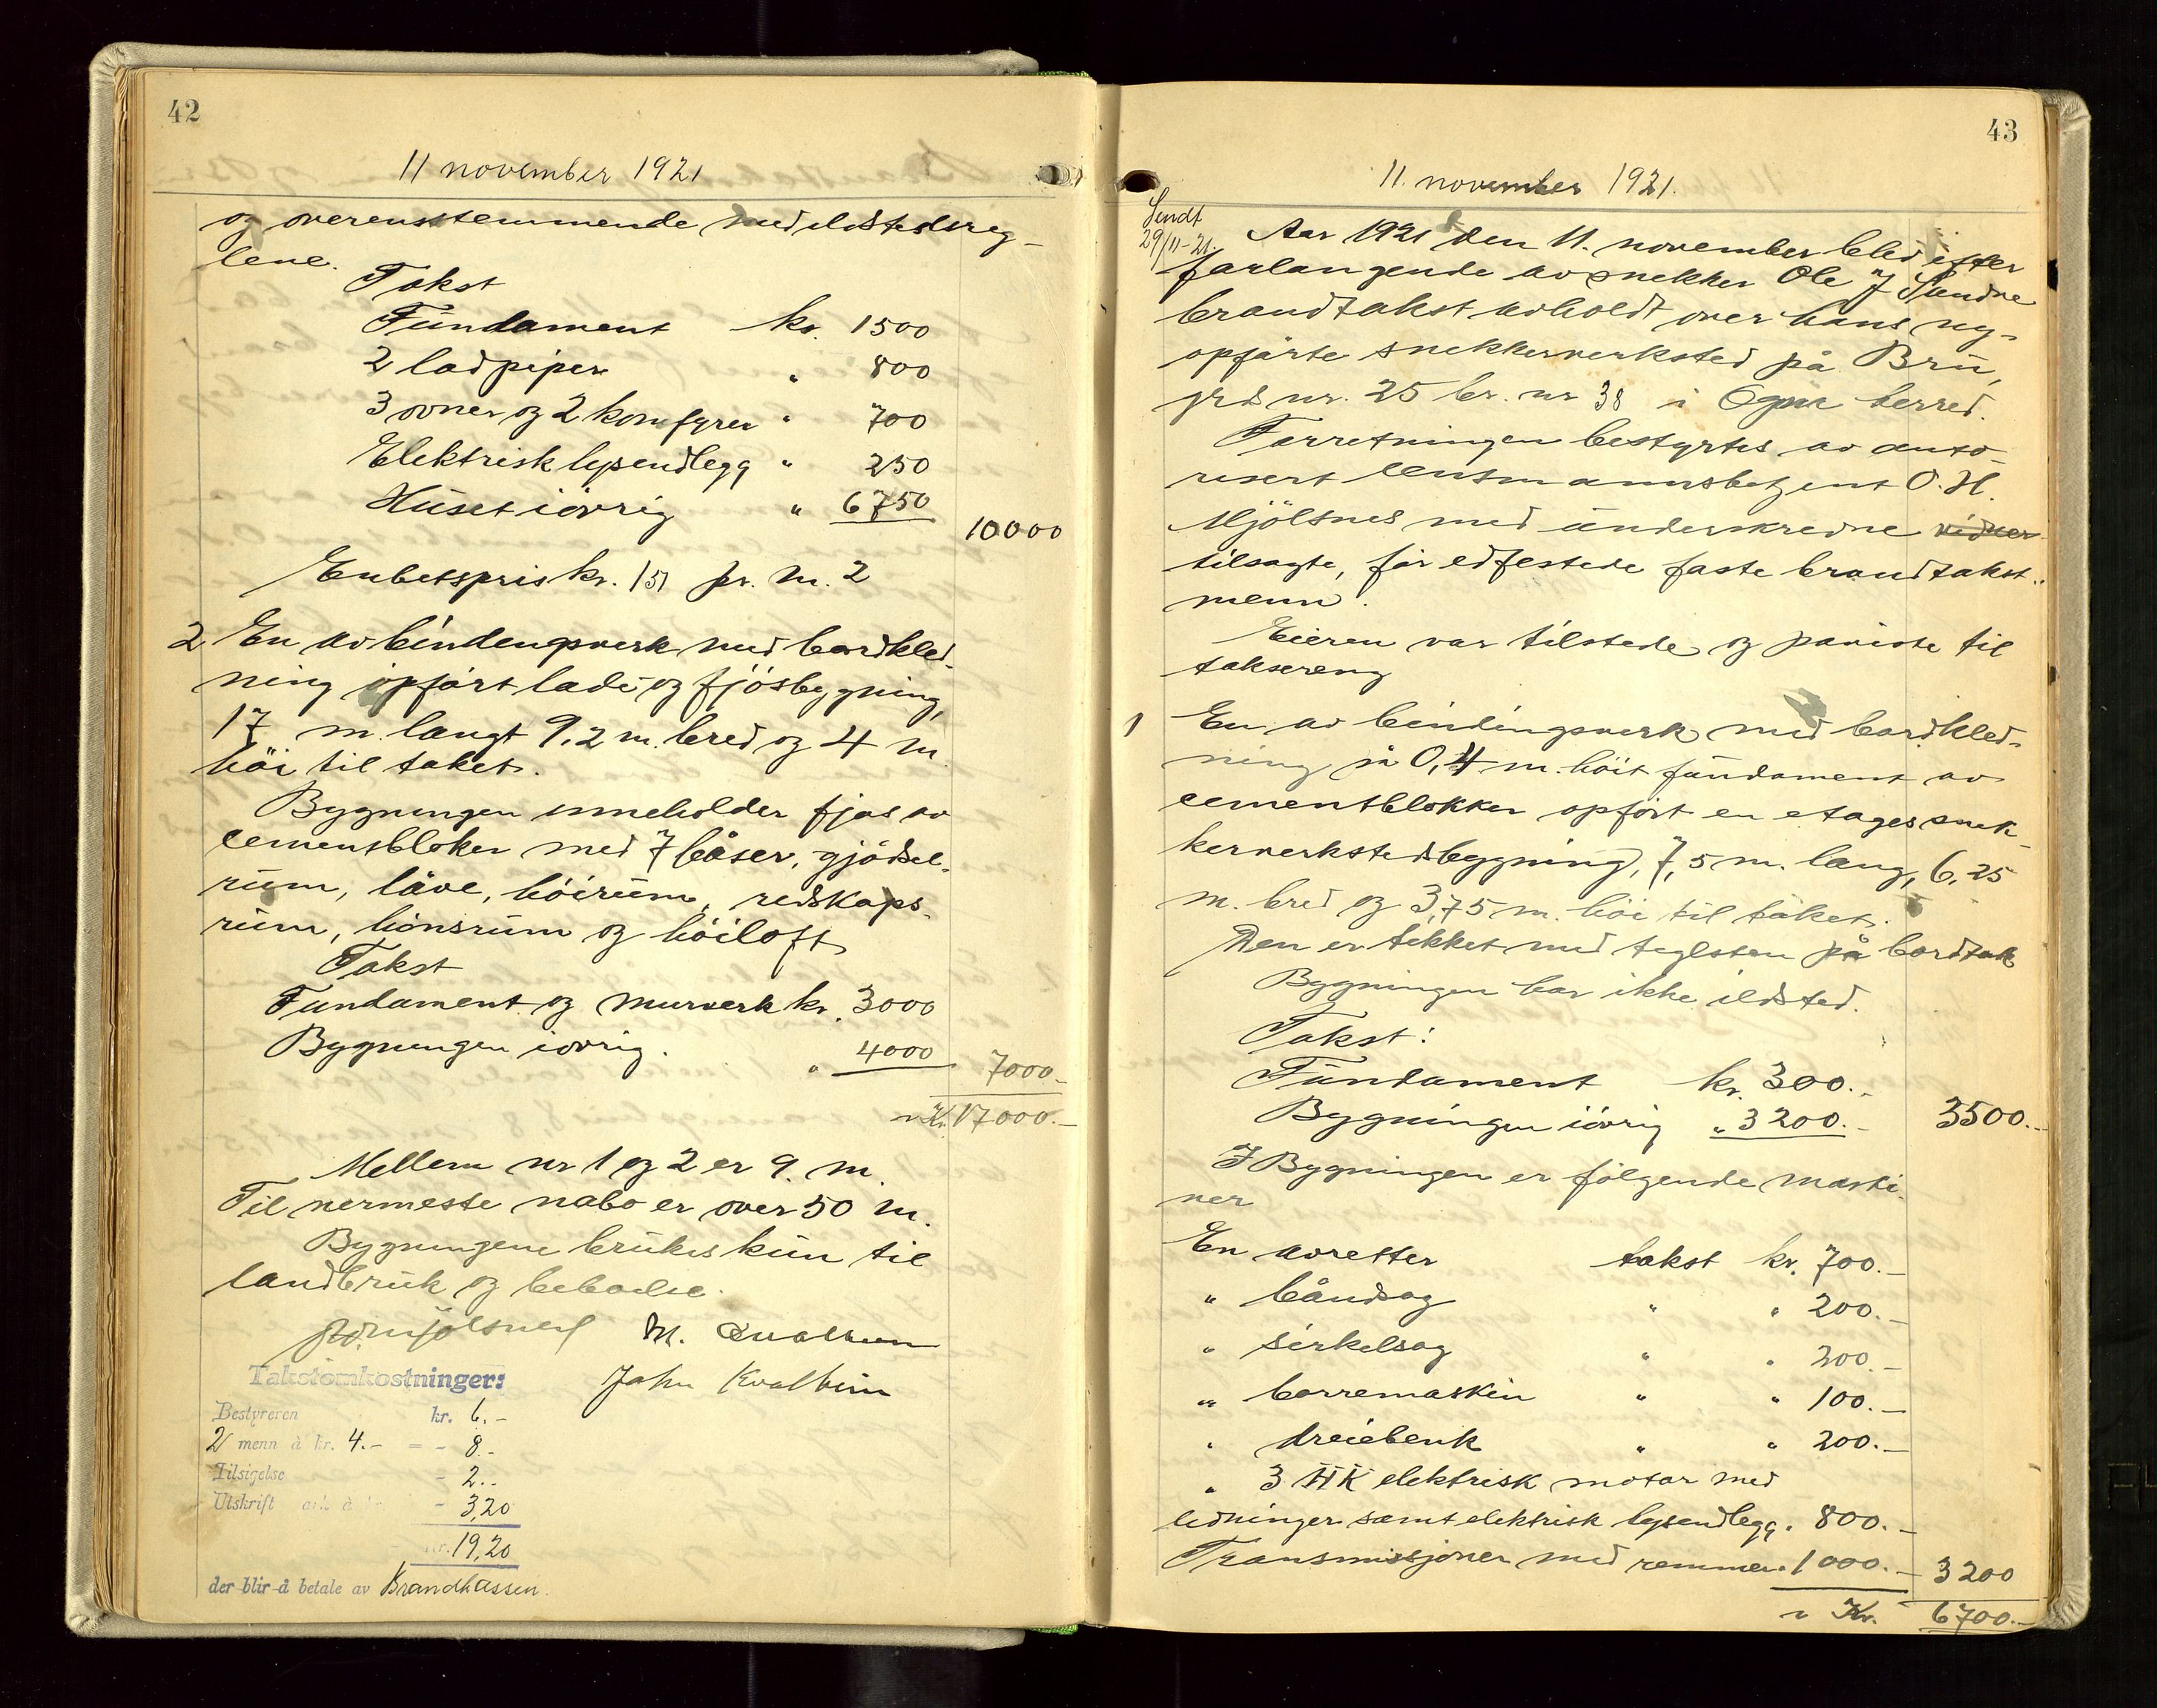 42
11 november 1921
og overensstemmende med ildstedsreg-
lene.
Takst
Fundament kr. 1500
2 lodpiper " 800
3 ovner og 2 komfyrer " 700
Elektrisk lysendlegg " 250
Huset iövrig " 6750
10000
Enhetspris kr. 151 pr. m. 2
2 En av bindingsverk med bordkled-
ning opfört lade og fjösbygning,
17 m. langt 9,2 m. bred og 4 m
höi til taket.
Bygningen inneholder fjøs av
cementbloker med 7 båser, gjödsel-
rum, låve, höirum, redskaps-
rum, hönsrum og höiloft
Takst
Fundament og murverk kr. 3000
Bygningen iövrig. " 4000 7000.-
Kr. 17000.-
Mellem nr 1 og 2 er 9. m.
Til nermeste nabo er over 50 m.
Bygningene brukes kun til
landbruk og beboelse.
O.H. Mjölsnes M. Qualheim
John Kvalheim
Takstomkostninger:
Bestyreren kr. 6.-
2 menn à kr. 4.- = - 8.-
Tilsigelse - 2.-
Utskrift ark à kr - 3,20
kr. 19,20
der blir å betale av Brandkassen.
43
11. november 1921.
Sendt
29/11-21.
Aar 1921 den 11. november blev efter
forlangende av snekker Ole J Sandne
brandtakst avholdt over hans ny-
opförte snekkerverksted på Bru,
grd nr. 25 br. nr 38 i herred.
Forretningen bestyrtes av auto-
risert lensmannsbetjent O. H.
Mjölsnes med underskrevne vidner
tilsagte, för edfestede faste brandtakst-
menn.
Eieren var tilstede og påviste til
taksering
1 En av bindingsverk med bordkled-
ning på 0,4 m. höit fundament av
cementblokker opfört en etages snek-
kerverkstedbygning, 7,5 m. lang, 6,25
m. bred og 3,75 m. höi til taket.
Den er tekket med teglsten på bordtak
Bygningen har ikke ildsted.
Takst:
Fundament kr. 300.-
Bygningen iövrig " 3200.- 3500.-
I Bygningen er fölgende maski-
ner
En avretter takst kr. 700.-
" båndsag " " 200.-
" sirkelsag " " 200.-
" borremaskin " " 100.-
" dreiebenk " " 200.-
" 3 HK elektrisk motor med
ledninger samt elektrisk lysendlegg " 800.-
Transmissjoner med remmer " 1000.- 3200
Kr. 6700.-